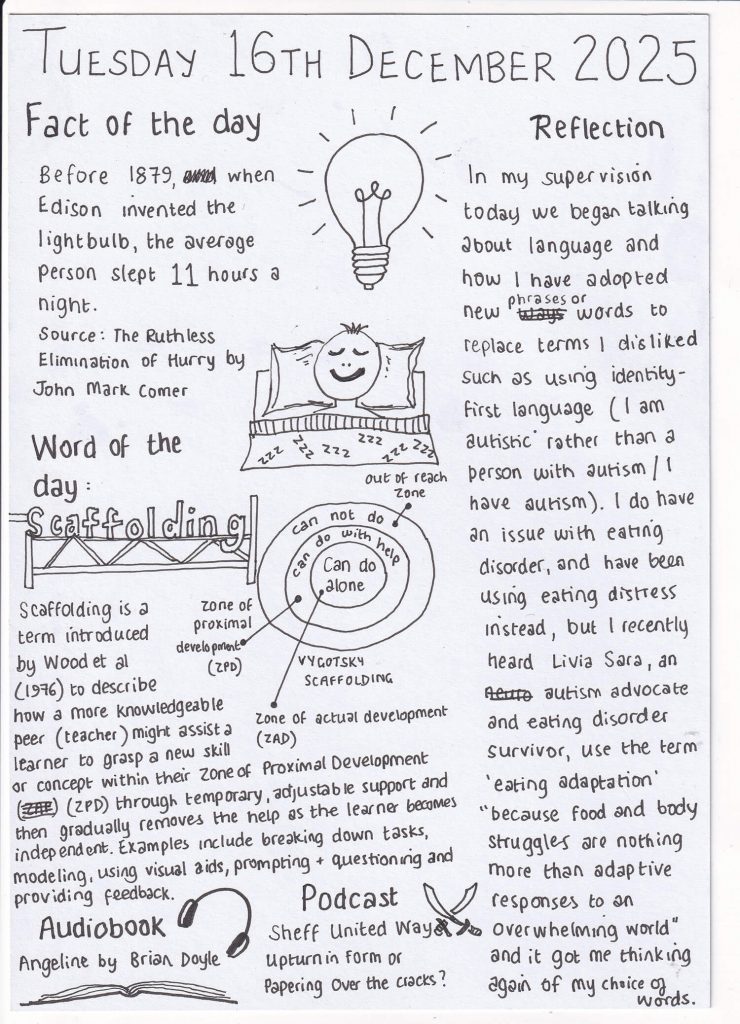 TUESDAY 16TH DECEMBER 2025
Fact of the day
Before 1879, when
Edison invented the
lightbulb, the average
person slept 11 hours a
night.
Source: The Ruthless
Elimination of Hurry by
John Mark Comer
zzz zzz zzz zzz zzz zzz
Word of the
day:
Scaffolding
out of reach
zone
can not do
can do with help
Can do
alone
zone of
proximal
development
(ZPD)
VYGOTSKY
SCAFFOLDING
Zone of actual development
(ZAD)
Scaffolding is a
term introduced
by Wood et al
(1976) to describe
how a more knowledgeable
peer (teacher) might assist a
learner to grasp a new skill
or concept within their Zone of Proximal Development
(ZPD) through temporary, adjustable support and
then gradually removes the help as the learner becomes
independent. Examples include breaking down tasks,
modeling, using visual aids, prompting + questioning and
providing feedback.
Audiobook
Angeline by Brian Doyle
Podcast
Sheff United Way
Upturn in form or
Papering Over the cracks?
Reflection
In my supervision
today we began talking
about language and
how I have adopted
new phrases or words to
replace terms I disliked
such as using identity-
first language (I am
autistic' rather than a
person with autism / I
have autism). I do have
an issue with eating
disorder, and have been
using eating distress
instead, but I recently
heard Livia Sara, an
autism advocate
and eating disorder
survivor, use the term
'eating adaptation'
"because food and body
struggles are nothing
more than adaptive
responses to an
overwhelming world"
and it got me thinking
again of my choice of
words.